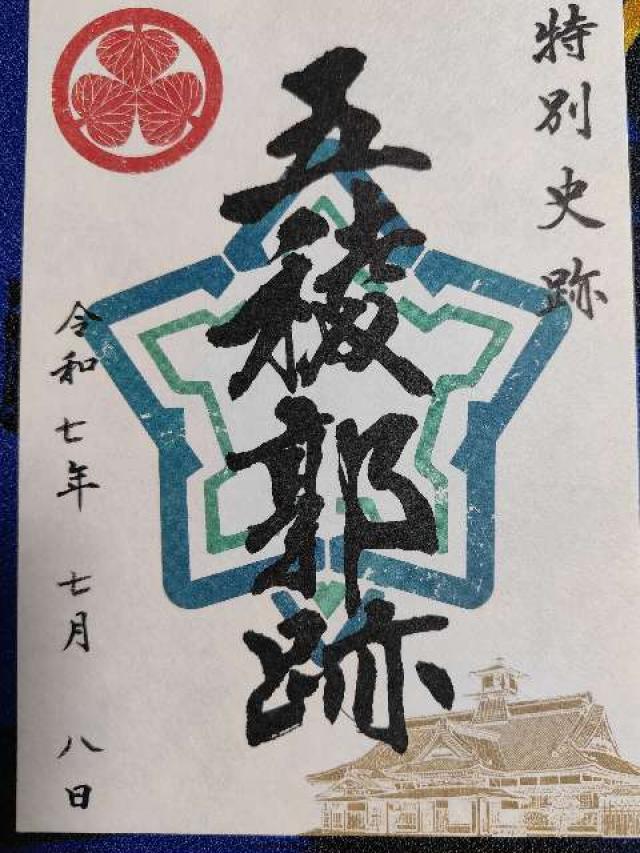 特別史跡
五稜郭跡
令和七年 七月 八日